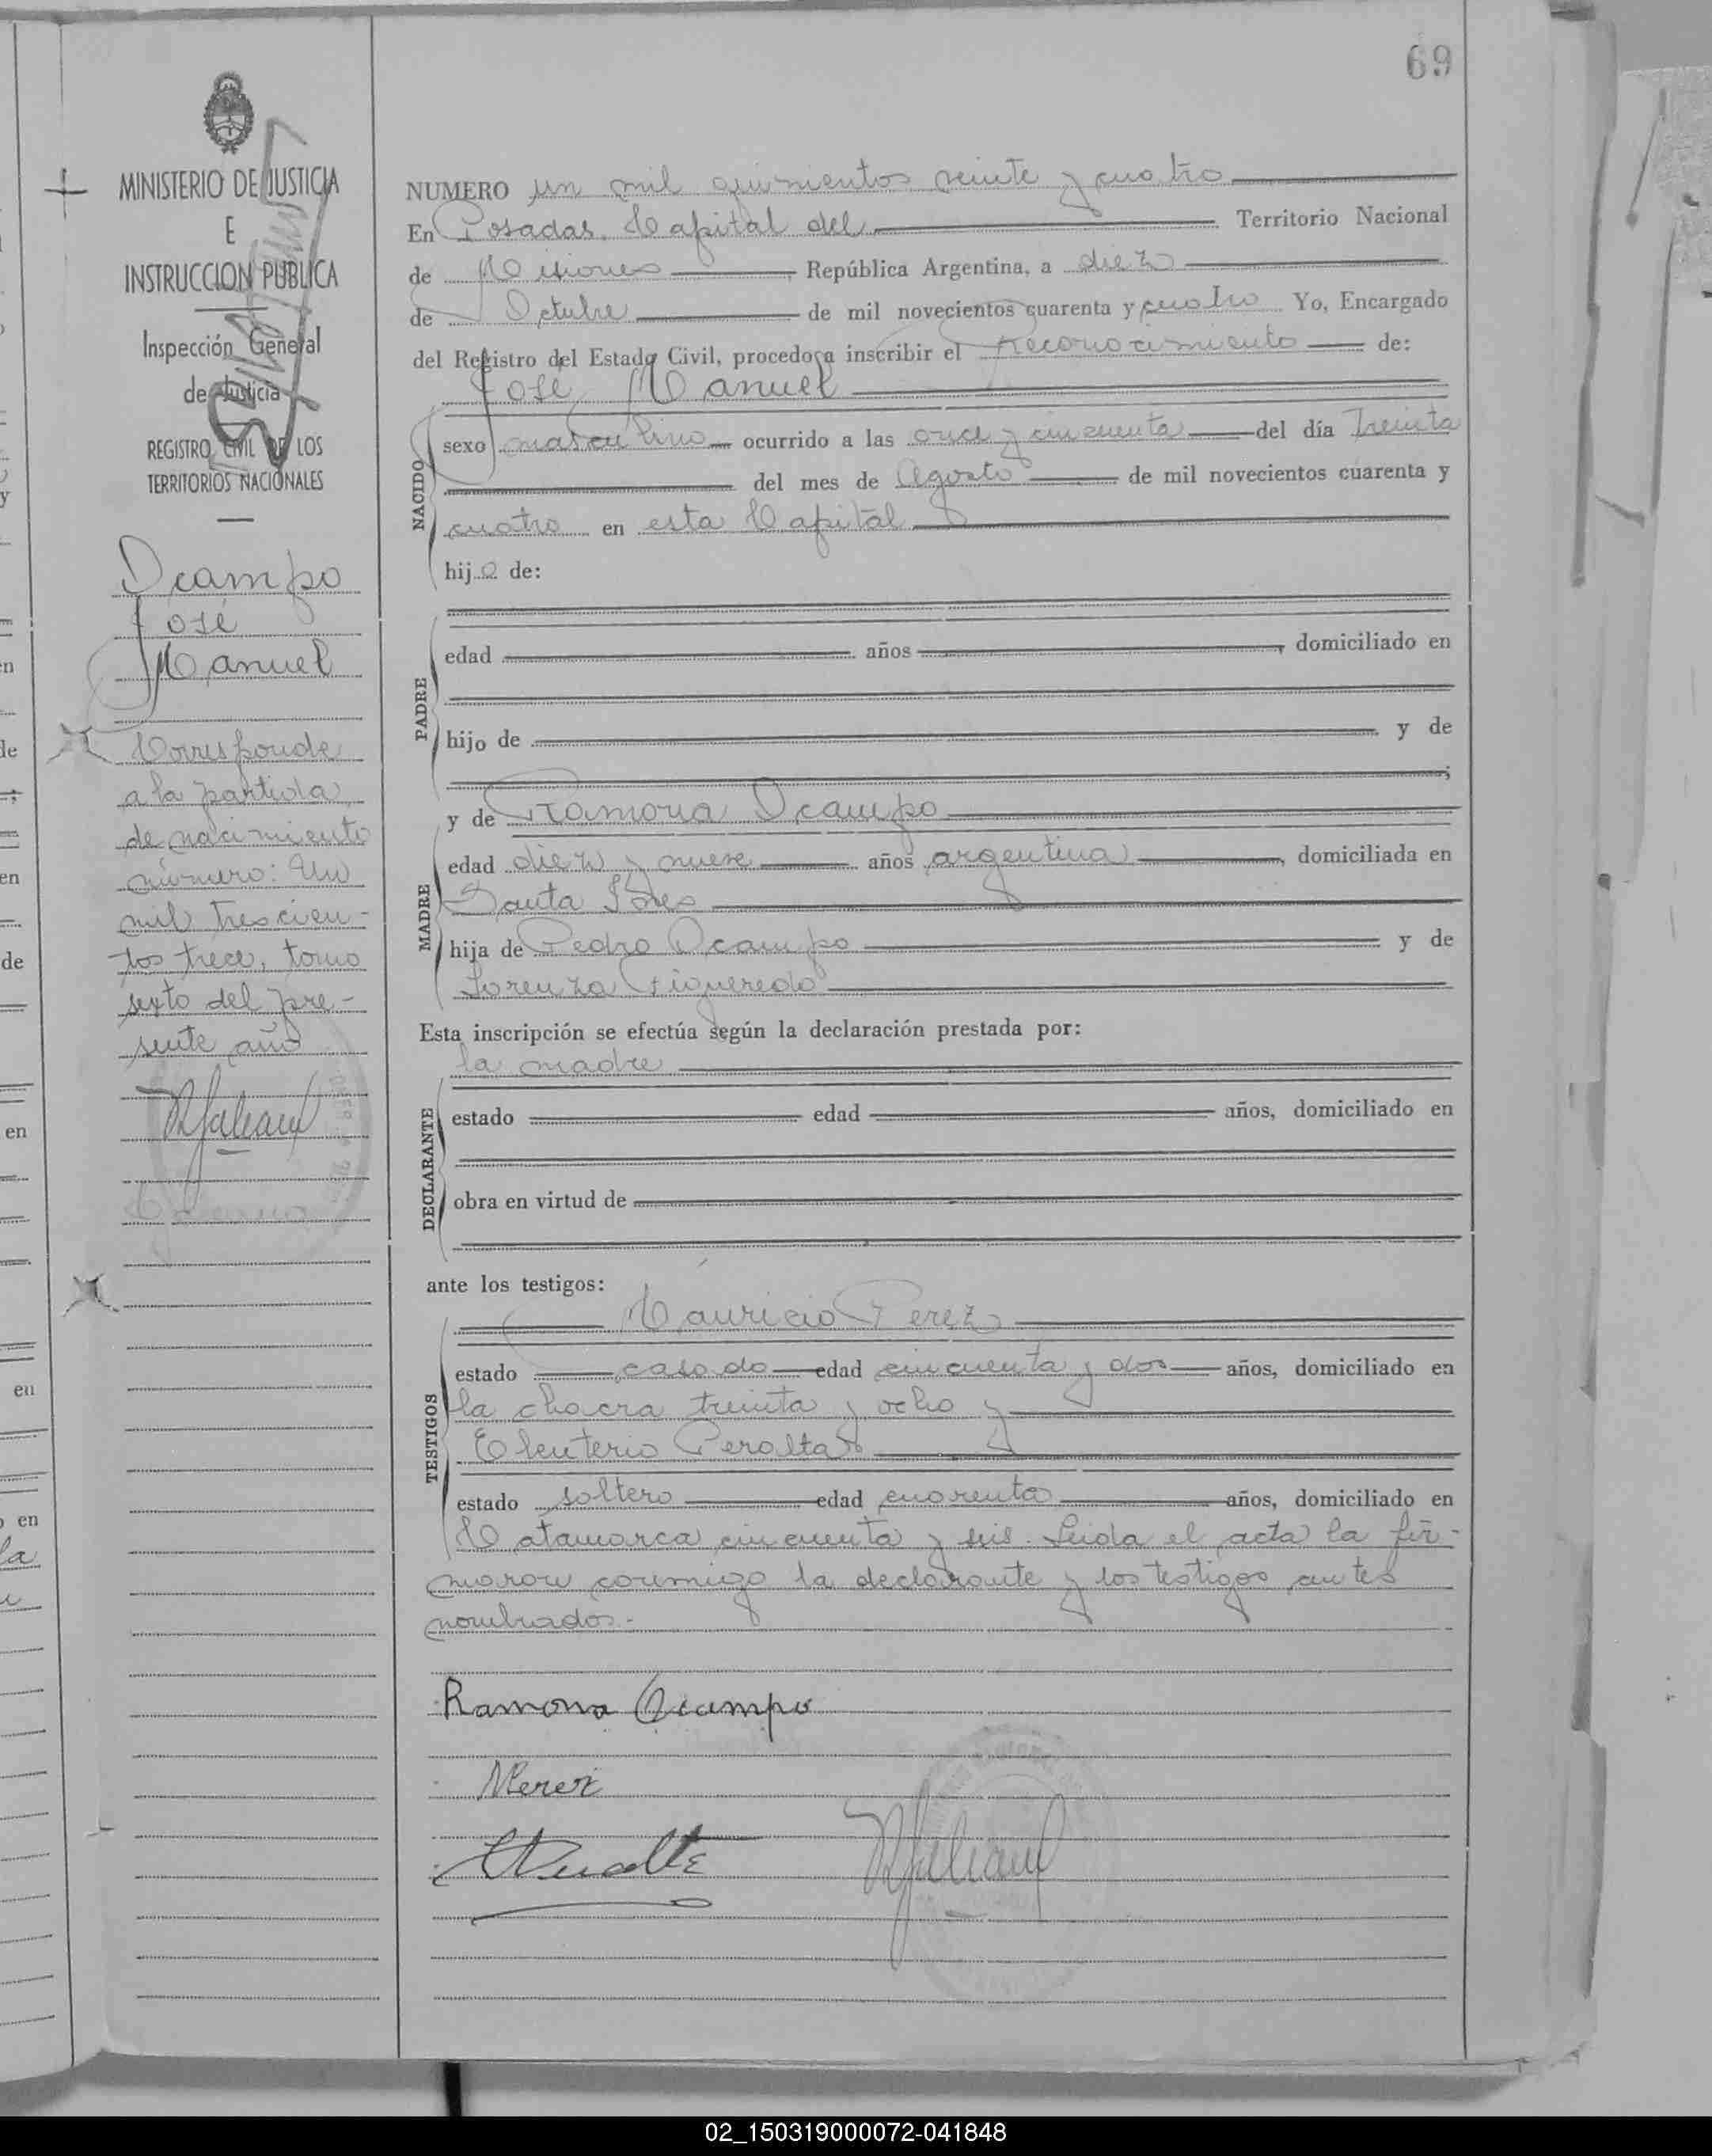 69
MINISTERIO DE JUSTICIA
E
INSTRUCCION PUBLICA
Inspección General
de Justicia
REGISTRO CIVIL DE LOS
TERRITORIOS NACIONALES
Ocampo
José
Manuel
Corresponde
a la partida
de nacimiento
número: Un
mil trescien-
tos trece, tomo
sexto del pre-
sente año
NUMERO un mil quinientos veinte y cuatro
En Posadas, Capital del Territorio Nacional
de Misiones, República Argentina, a diez
de Octubre de mil novecientos cuarenta y cuatro Yo, Encargado
del Registro del Estado Civil, procedo a inscribir el reconocimiento de:
José Manuel
NACIDO
sexo masculino ocurrido a las once y cincuenta del día Treinta
del mes de Agosto de mil novecientos cuarenta y
cuatro en esta Capital
hijo de:
PADRE
edad años, domiciliado en
hijo de y de
;
y de Ramona Ocampo
MADRE
edad diez y nueve años argentina, domiciliada en
Santa Inés
hija de Pedro Ocampo y de
Lorenza Figueredo
Esta inscripción se efectúa según la declaración prestada por:
la madre
DECLARANTE
estado edad años, domiciliado en
obra en virtud de
ante los testigos:
Mauricio Perez
TESTIGOS
estado casado edad cincuenta y dos años, domiciliado en
la chacra treinta y ocho y
Eleuterio Peralta
estado soltero edad cuarenta años, domiciliado en
Catamarca cincuenta y seis. Leida el acta la fir-
maron conmigo la declarante y los testigos antes
nombrados.-
Ramona Ocampo
MPerez
EPeralta
02_150319000072-041848